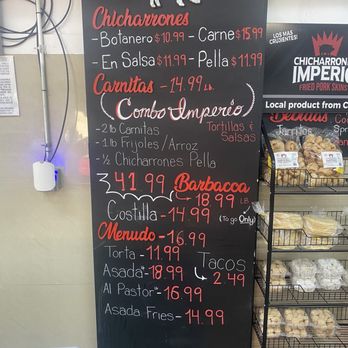 Chicharrones
- Botanero $10.99 - Carne $15.99
- En Salsa $11.99 - Pella $11.99
Carnitas - 14.99 LB.
(Combo Imperio)
- 2 lb Carnitas
- 1 lb Frijoles/Arroz
- ½ Chicharrones Pella
Tortillas &
Salsas
41.99
Barbacoa
18.99 LB
Costilla - 14.99 (To go Only)
Menudo - 16.99
Torta - 11.99
Asada - 18.99
Al Pastor - 16.99
Asada Fries - 14.99
Tacos
2.49
LOS MAS
CRUJIENTES!
CHICHARRON
IMPERIO
FRIED PORK SKINS
Local product from C
Bebidas
Jarritos